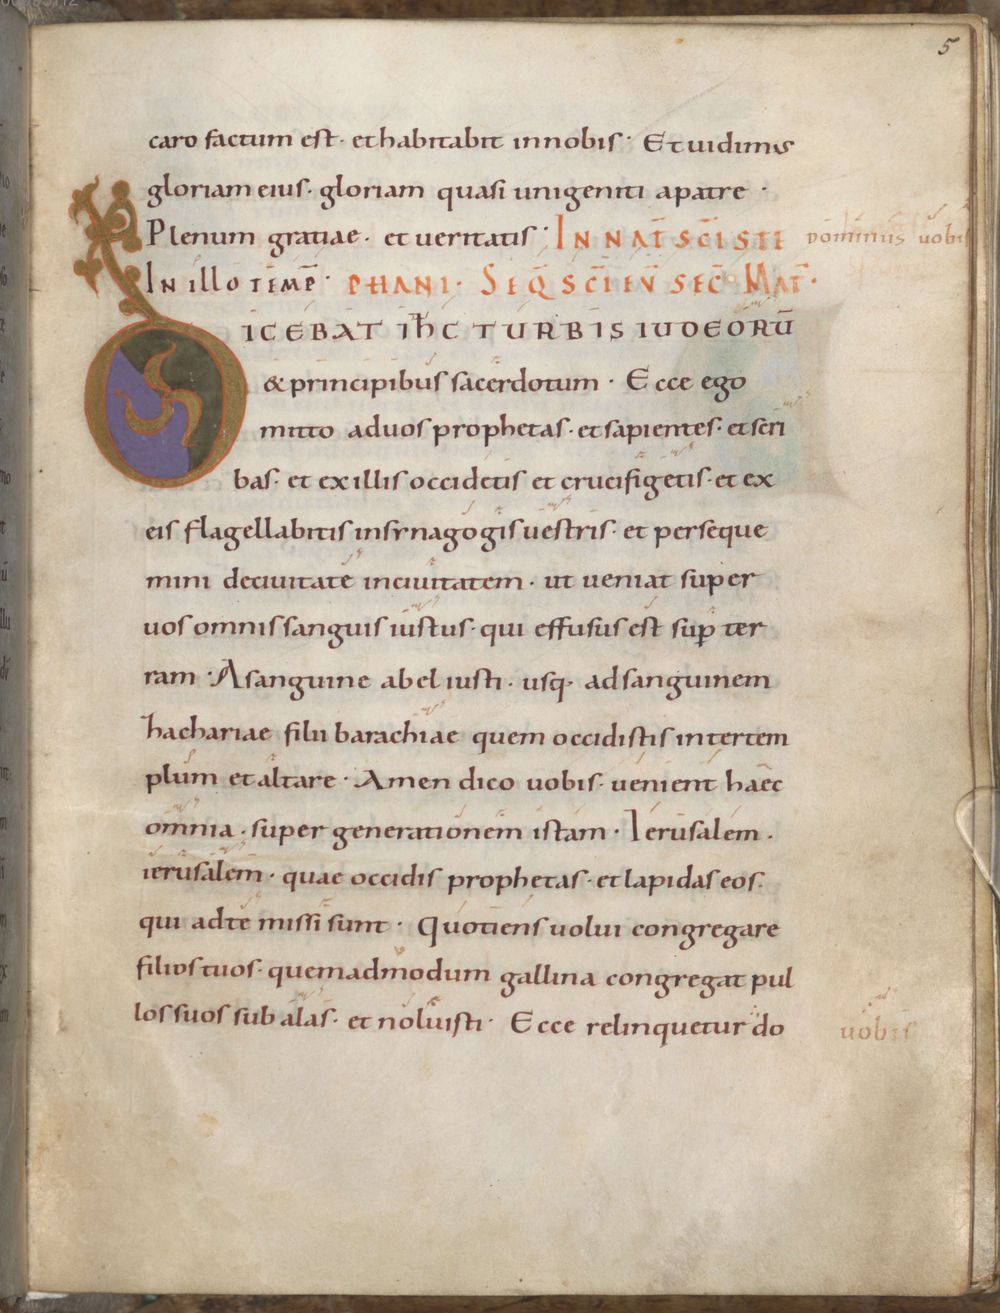 5
caro factum est· et habitabit in nobis· Et uidimus
gloriam eius· gloriam quasi unigeniti a patre ·
Plenum gratiae· et ueritatis· IN NAT̄ SC̄I STE dominus uobis
In illo temp̄· PHANI· SEQ̄ SC̄I EV̄ SEC̄ MAT̄·
DICEBAT ih̄c TURBIS IUDEORŪ
& principibus sacerdotum · Ecce ego
mitto ad uos prophetas· et sapientes· et scri
bas· et ex illis occidetis et crucifigetis· et ex
eis flagellabitis in synagogis uestris· et perseque
mini de ciuitate in ciuitatem · ut ueniat super
uos omnis sanguis iustus· qui effusus est sup̄ ter
ram · A sanguine abel iusti · usq· ad sanguinem
hachariae filii barachiae quem occidistis inter tem
plum et altare · Amen dico uobis· uenient haec
omnia · super generationem istam · Ierusalem ·
ierusalem · quae occidis prophetas· et lapidas eos·
qui ad te missi sunt · Quotiens uolui congregare
filios tuos· quemadmodum gallina congregat pul
los suos sub alas· et noluisti· Ecce relinquetur do
uobis